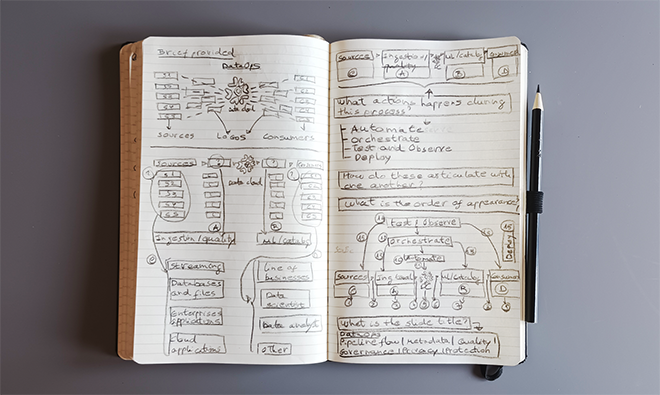 Brief provided
DataOPS
Data cloud
Sources
LOGOS
Consumers
Sources
Data cloud
A
B
Ingestion/quality
ML/catalog
Streaming
Databases
and files
Enterprises
applications
Cloud
applications
Line of
businesses
Data
scientist
Data analyst
Other
Sources
Ingestion/
quality
ML/catalog
Consumed
C
A
B
D
What actions happens during
this process?
Automate
Orchestrate
Test and Observe
Deploy
How do these articulate with
one another?
What is the order of appearance?
Test / Observe
Orchestrate
Automate
Deploy
Sources
ML/catalog
C
A
B
D
What is the slide title?
DataOPS
Pipeline flow / Metadata / Quality /
Governance / Privacy / Protection